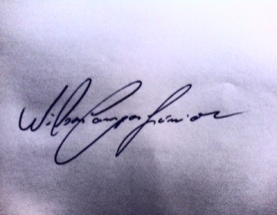 Wilson Campos Júnior